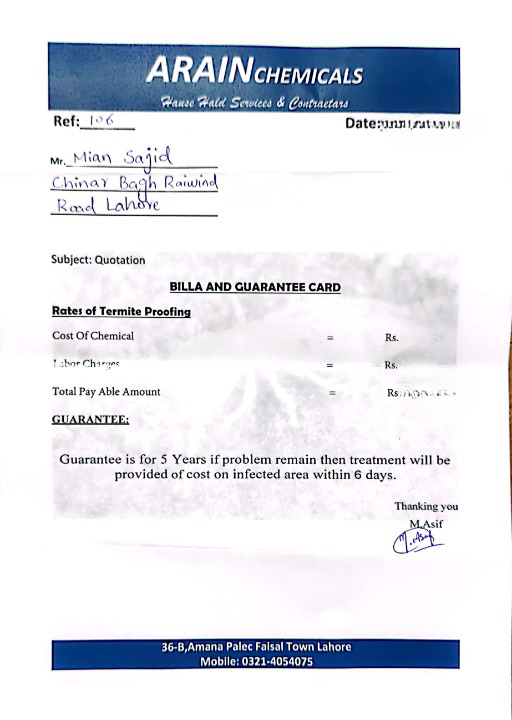 ARAIN CHEMICALS
Hause Hald Services & Contractars
Ref: 106 Date:
Mr. Mian Sajid
Chinar Bagh Raiwind
Road Lahore
Subject: Quotation
BILLA AND GUARANTEE CARD
Rates of Termite Proofing
Cost Of Chemical = Rs.
Labor Charges = Rs.
Total Pay Able Amount = Rs.
GUARANTEE:
Guarantee is for 5 Years if problem remain then treatment will be
provided of cost on infected area within 6 days.
Thanking you
M.Asif
M.Asif
36-B,Amana Palec Faisal Town Lahore
Moblle: 0321-4054075